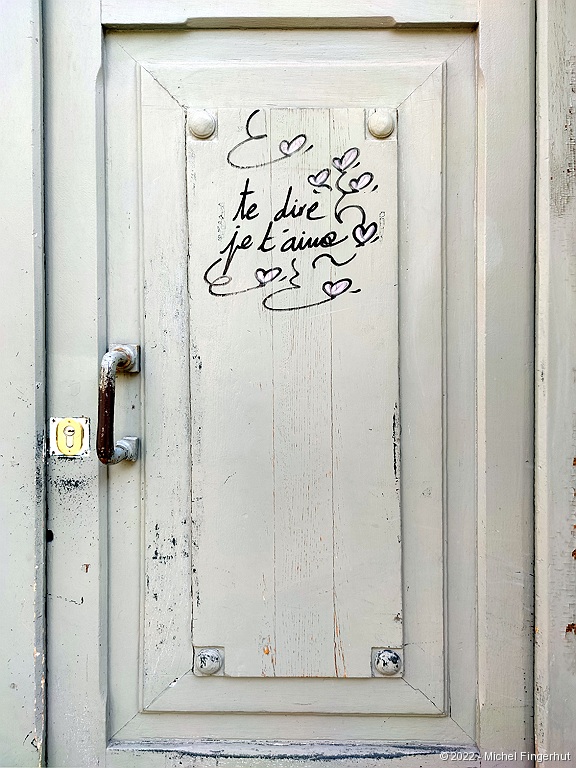 te dire
je t'aime
©2022 - Michel Fingerhut